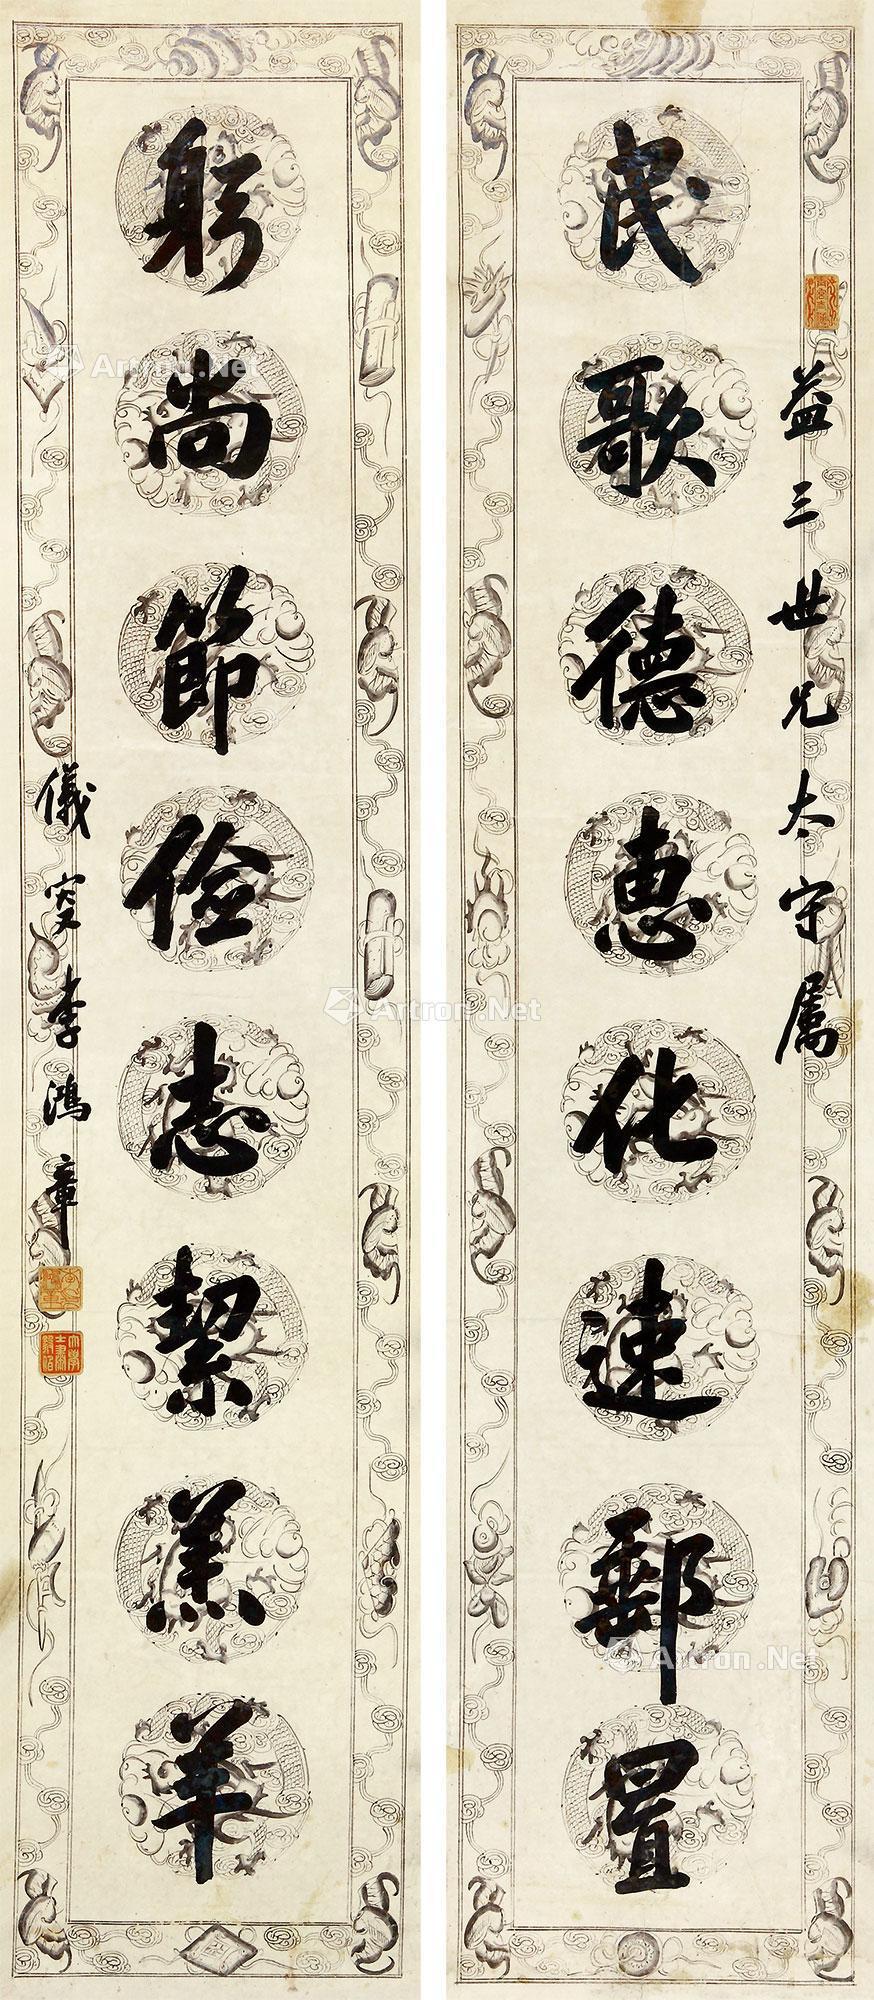 益三世兄太守属
民歌德惠化速郵置
躬尚節儉志絜羔羊
儀叟李鴻章
Artron.Net
Artron.Net
Artron.Net
Artron.Net